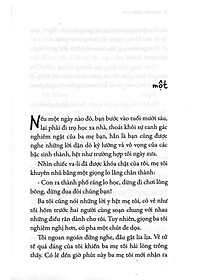 một
Nếu một ngày nào đó, bạn bước vào tuổi mười sáu,
lại phải đi trọ học xa nhà, thoát khỏi sự canh gác
nghiêm ngặt của ba mẹ bạn, hẳn là bạn cũng được
nghe những lời dặn dò kỹ lưỡng và vô vọng của các
bậc sinh thành, hệt như trường hợp tôi ngày xưa.
Nhìn chiếc va-li đã được khóa chặt của tôi, mẹ tôi
khuyên nhủ bằng một giọng lo lắng chân thành:
- Con ra thành phố ráng lo học, đừng đi chơi lông
bông, đừng đua đòi chúng bạn!
Ba tôi cũng nói những lời y hệt mẹ tôi, có vẻ như
tối hôm trước hai người cùng soạn chung với nhau
những điều răn dành cho tôi. Tuy nhiên, giọng ba tôi
nghiêm nghị hơn, có pha một chút đe dọa.
Tôi ngoan ngoãn đứng nghe, đầu gật lia lịa. Vẻ tử
tế quá đáng của tôi khiến ba mẹ tôi hài lòng trông thấy.
Có lẽ đến giờ phút này ba mẹ tôi mới nhận ra